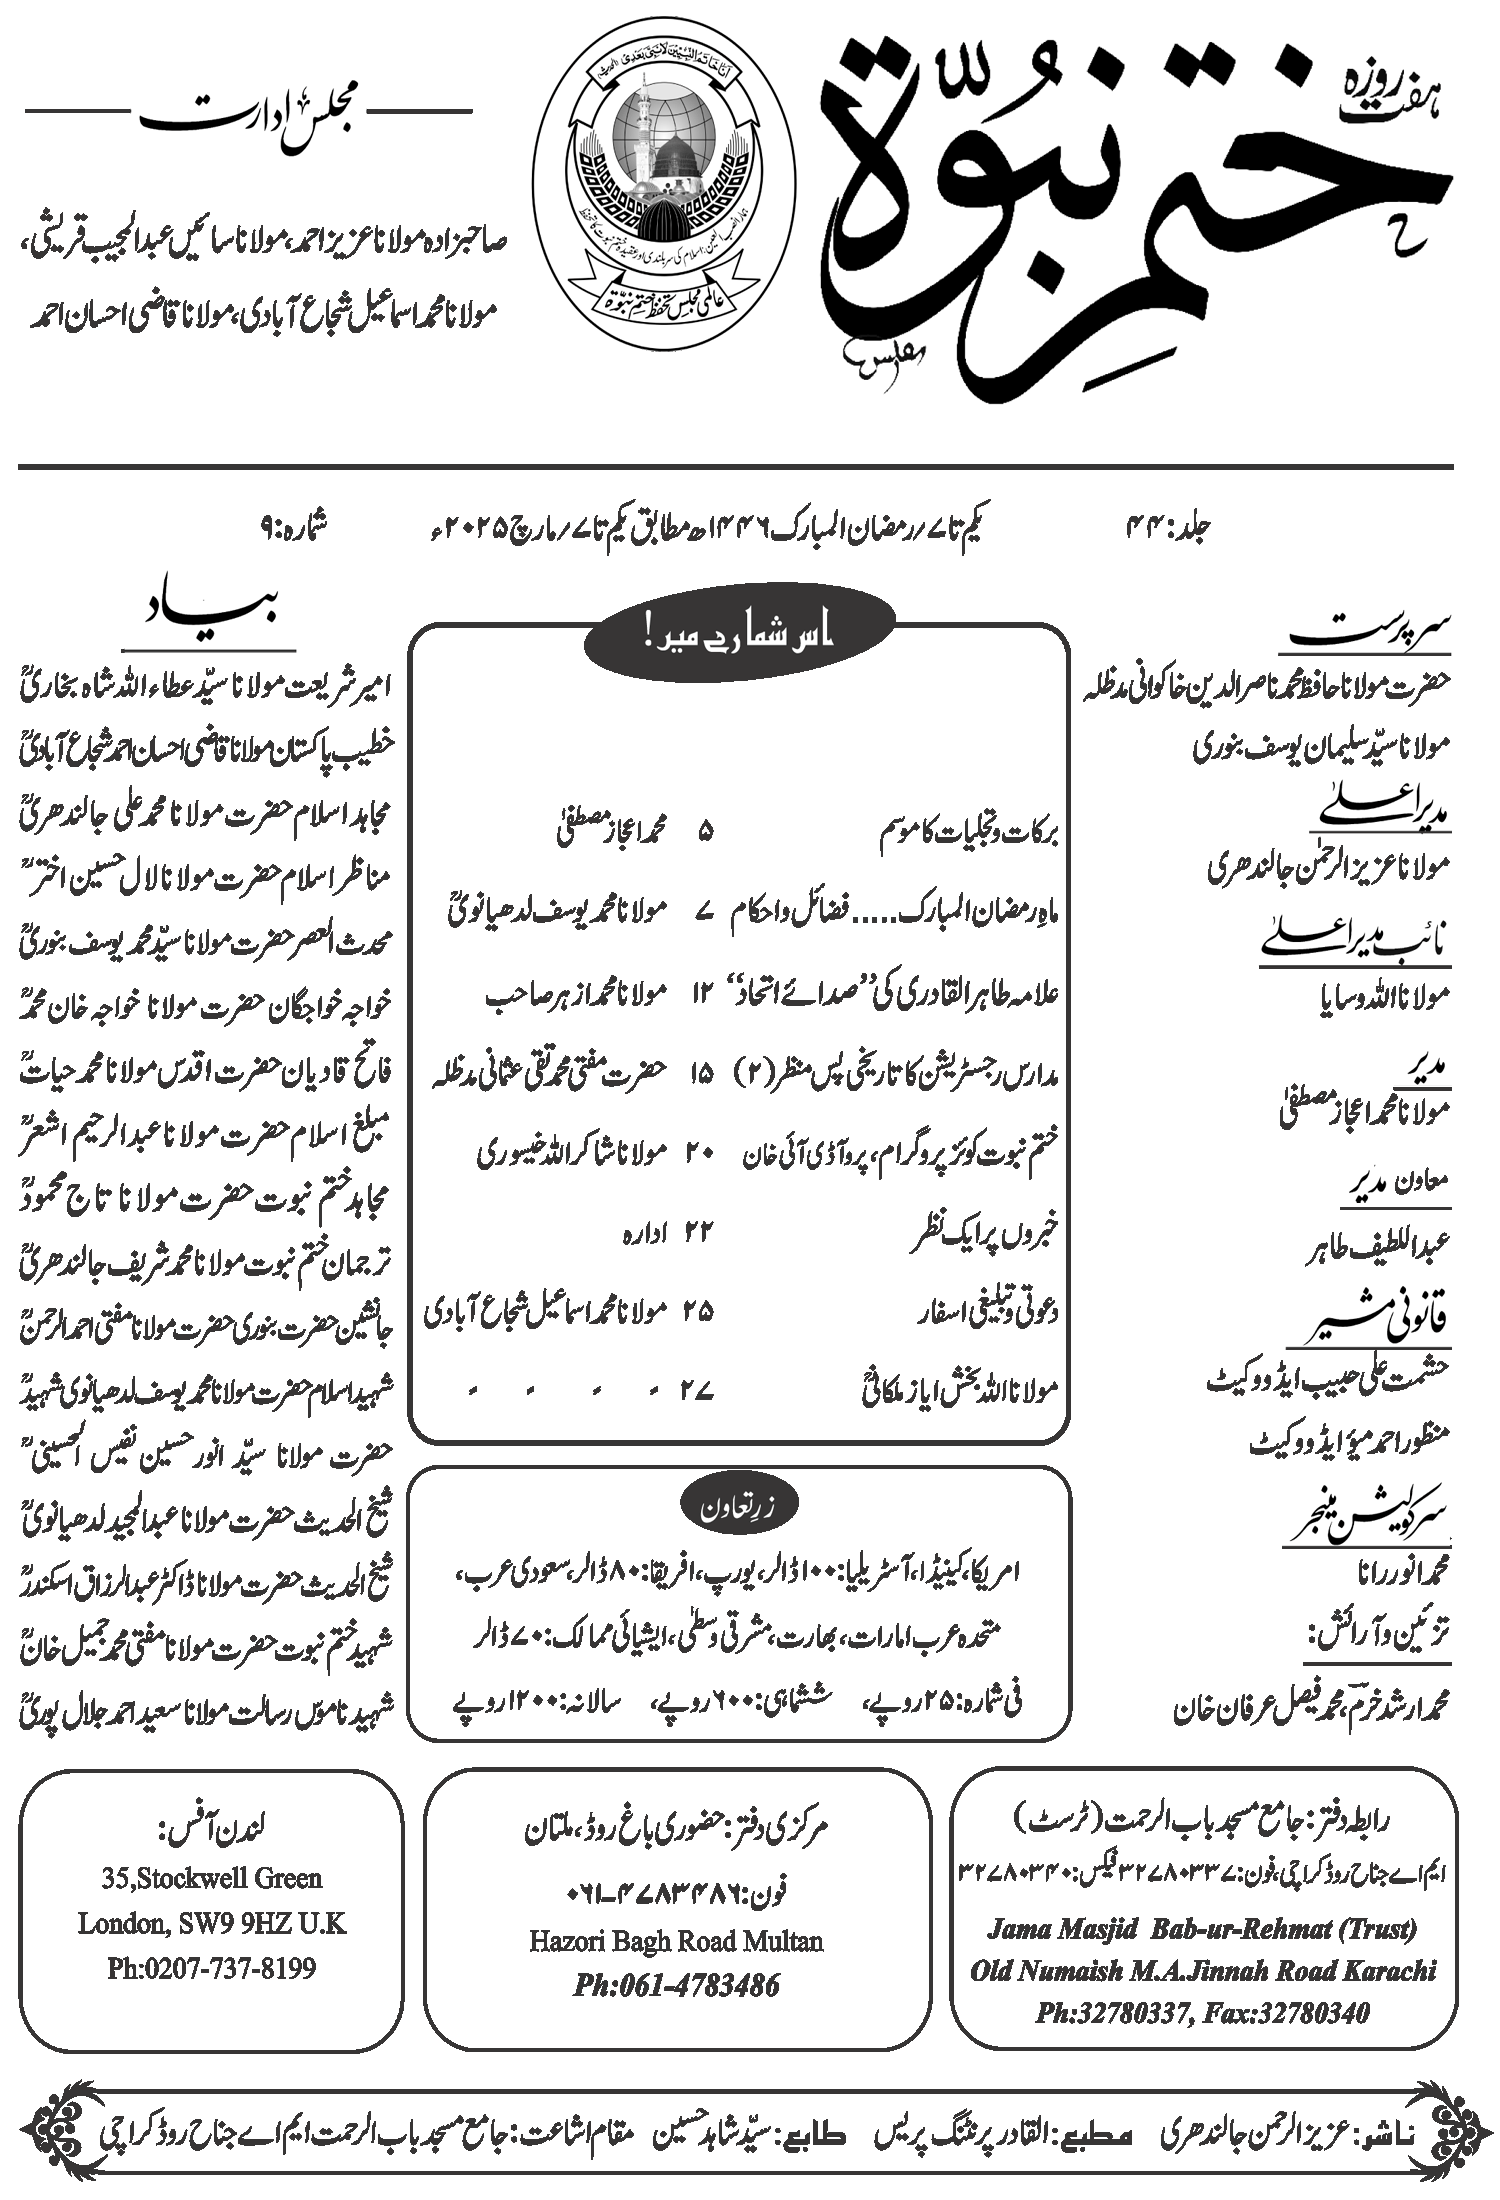 ہفت روزہ
ختم نبوّۃ
مجلس ادارت
صاحبزادہ مولانا عزیز احمد، مولانا سائیں عبدالمجیب قریشی،
مولانا محمد اسماعیل شجاع آبادی، مولانا قاضی احسان احمد
انا خاتم النبیین لا نبی بعدی (الحدیث)
ہمارا نصب العین: اسلام کی سربلندی اور عقیدہ ختم نبوت کا تحفظ
عالمی مجلس تحفظ ختم نبوّۃ
جلد: ۴۴
یکم تا ۷/رمضان المبارک ۱۴۴۶ھ مطابق یکم تا ۷/مارچ ۲۰۲۵ء
شمارہ: ۹
سرپرست
حضرت مولانا حافظ محمد ناصر الدین خاکوانی مدظلہ
مولانا سیّد سلیمان یوسف بنوری
مدیر اعلیٰ
مولانا عزیز الرحمٰن جالندھری
نائب مدیر اعلیٰ
مولانا اللہ وسایا
مدیر
مولانا محمد اعجاز مصطفیٰ
معاون مدیر
عبداللطیف طاہر
قانونی مشیر
حشمت علی حبیب ایڈووکیٹ
منظور احمد میؤ ایڈووکیٹ
سرکولیشن مینجر
محمد انور رانا
تزئین و آرائش:
محمد ارشد خرم، محمد فیصل عرفان خان
اس شمارے میں!
برکات و تجلیات کا موسم ۵ محمد اعجاز مصطفیٰ
ماہِ رمضان المبارک..... فضائل و احکام ۷ مولانا محمد یوسف لدھیانویؒ
علامہ طاہر القادری کی ”صدائے اتحاد“ ۱۲ مولانا محمد ازہر صاحب
مدارس رجسٹریشن کا تاریخی پس منظر (۲) ۱۵ حضرت مفتی محمد تقی عثمانی مدظلہ
ختم نبوت کوئز پروگرام، پروآ ڈی آئی خان ۲۰ مولانا شاکر اللہ خیسوری
خبروں پر ایک نظر ۲۲ ادارہ
دعوتی و تبلیغی اسفار ۲۵ مولانا محمد اسماعیل شجاع آبادی
مولانا اللہ بخش ایاز ملکانیؒ ۲۷ ٫ ٫ ٫ ٫
زرِ تعاون
امریکا، کینیڈا، آسٹریلیا: ۱۰۰ ڈالر، یورپ، افریقا: ۸۰ ڈالر، سعودی عرب،
متحدہ عرب امارات، بھارت، مشرقِ وسطیٰ، ایشیائی ممالک: ۷۰ ڈالر
فی شمارہ: ۲۵ روپے، ششماہی: ۶۰۰ روپے، سالانہ: ۱۲۰۰ روپے
بیاد
امیر شریعت مولانا سیّد عطاء اللہ شاہ بخاریؒ
خطیب پاکستان مولانا قاضی احسان احمد شجاع آبادیؒ
مجاہد اسلام حضرت مولانا محمد علی جالندھریؒ
مناظر اسلام حضرت مولانا لال حسین اخترؒ
محدث العصر حضرت مولانا سیّد محمد یوسف بنوریؒ
خواجہ خواجگان حضرت مولانا خواجہ خان محمدؒ
فاتح قادیان حضرت اقدس مولانا محمد حیاتؒ
مبلغ اسلام حضرت مولانا عبدالرحیم اشعرؒ
مجاہد ختم نبوت حضرت مولانا تاج محمودؒ
ترجمان ختم نبوت مولانا محمد شریف جالندھریؒ
جانشین حضرت بنوری حضرت مولانا مفتی احمد الرحمنؒ
شہید اسلام حضرت مولانا محمد یوسف لدھیانوی شہیدؒ
حضرت مولانا سیّد انور حسین نفیس الحسینیؒ
شیخ الحدیث حضرت مولانا عبدالمجید لدھیانویؒ
شیخ الحدیث حضرت مولانا ڈاکٹر عبدالرزاق اسکندرؒ
شہید ختم نبوت حضرت مولانا مفتی محمد جمیل خانؒ
شہید ناموس رسالت مولانا سعید احمد جلال پوریؒ
رابطہ دفتر: جامع مسجد باب الرحمت (ٹرسٹ)
ایم اے جناح روڈ کراچی، فون: ۳۲۷۸۰۳۳۷ فیکس: ۳۲۷۸۰۳۴۰
Jama Masjid Bab-ur-Rehmat (Trust)
Old Numaish M.A.Jinnah Road Karachi
Ph:32780337, Fax:32780340
مرکزی دفتر: حضوری باغ روڈ، ملتان
فون: ۰۶۱-۴۷۸۳۴۸۶
Hazori Bagh Road Multan
Ph:061-4783486
لندن آفس:
35,Stockwell Green
London, SW9 9HZ U.K
Ph:0207-737-8199
ناشر: عزیز الرحمن جالندھری مطبع: القادر پرنٹنگ پریس طابع: سیّد شاہد حسین مقام اشاعت: جامع مسجد باب الرحمت ایم اے جناح روڈ کراچی